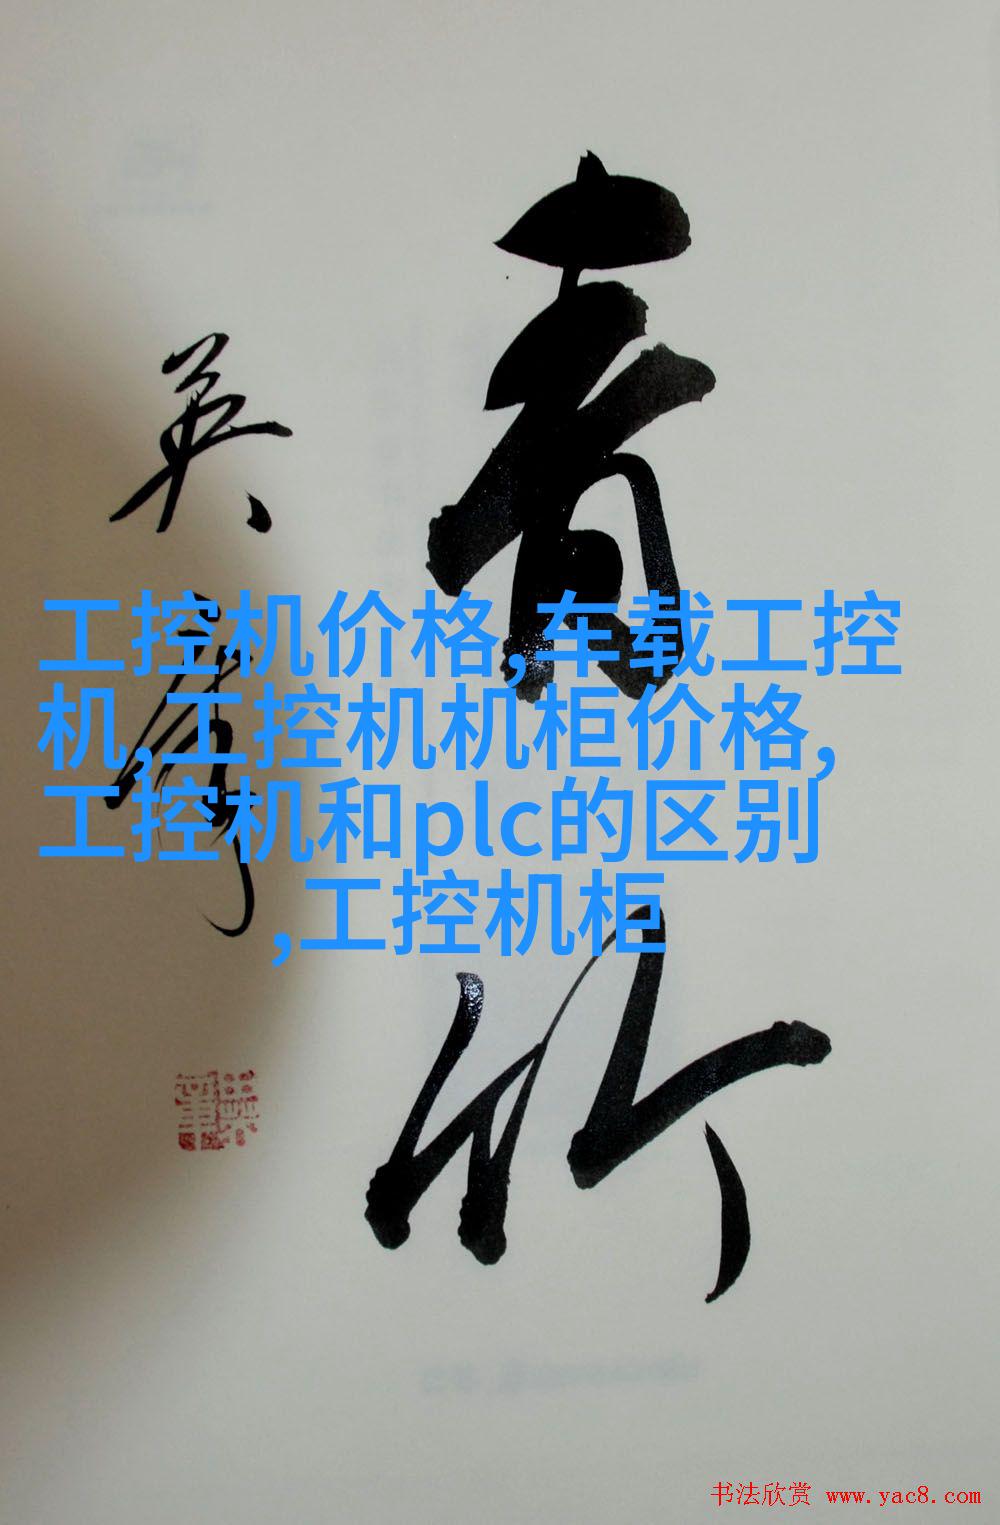 青竹
英
工控机价格,车载工控
机,工控机机柜价格,
工控机和plc的区别
,工控机柜
书法欣赏 www.yac8.com